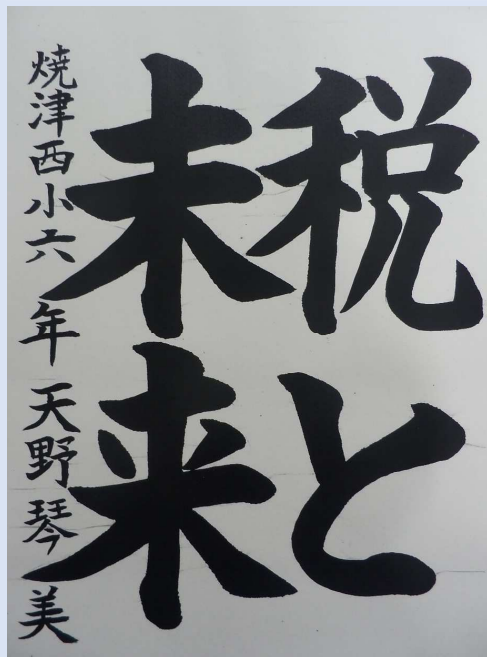 税と
未来
焼津西小六年天野琴美